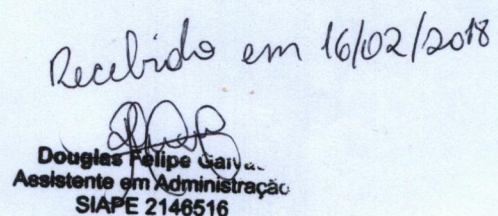 Recebido em 16/02/2018
Douglas Felipe
Assistente em Administração
SIAPE 2146516